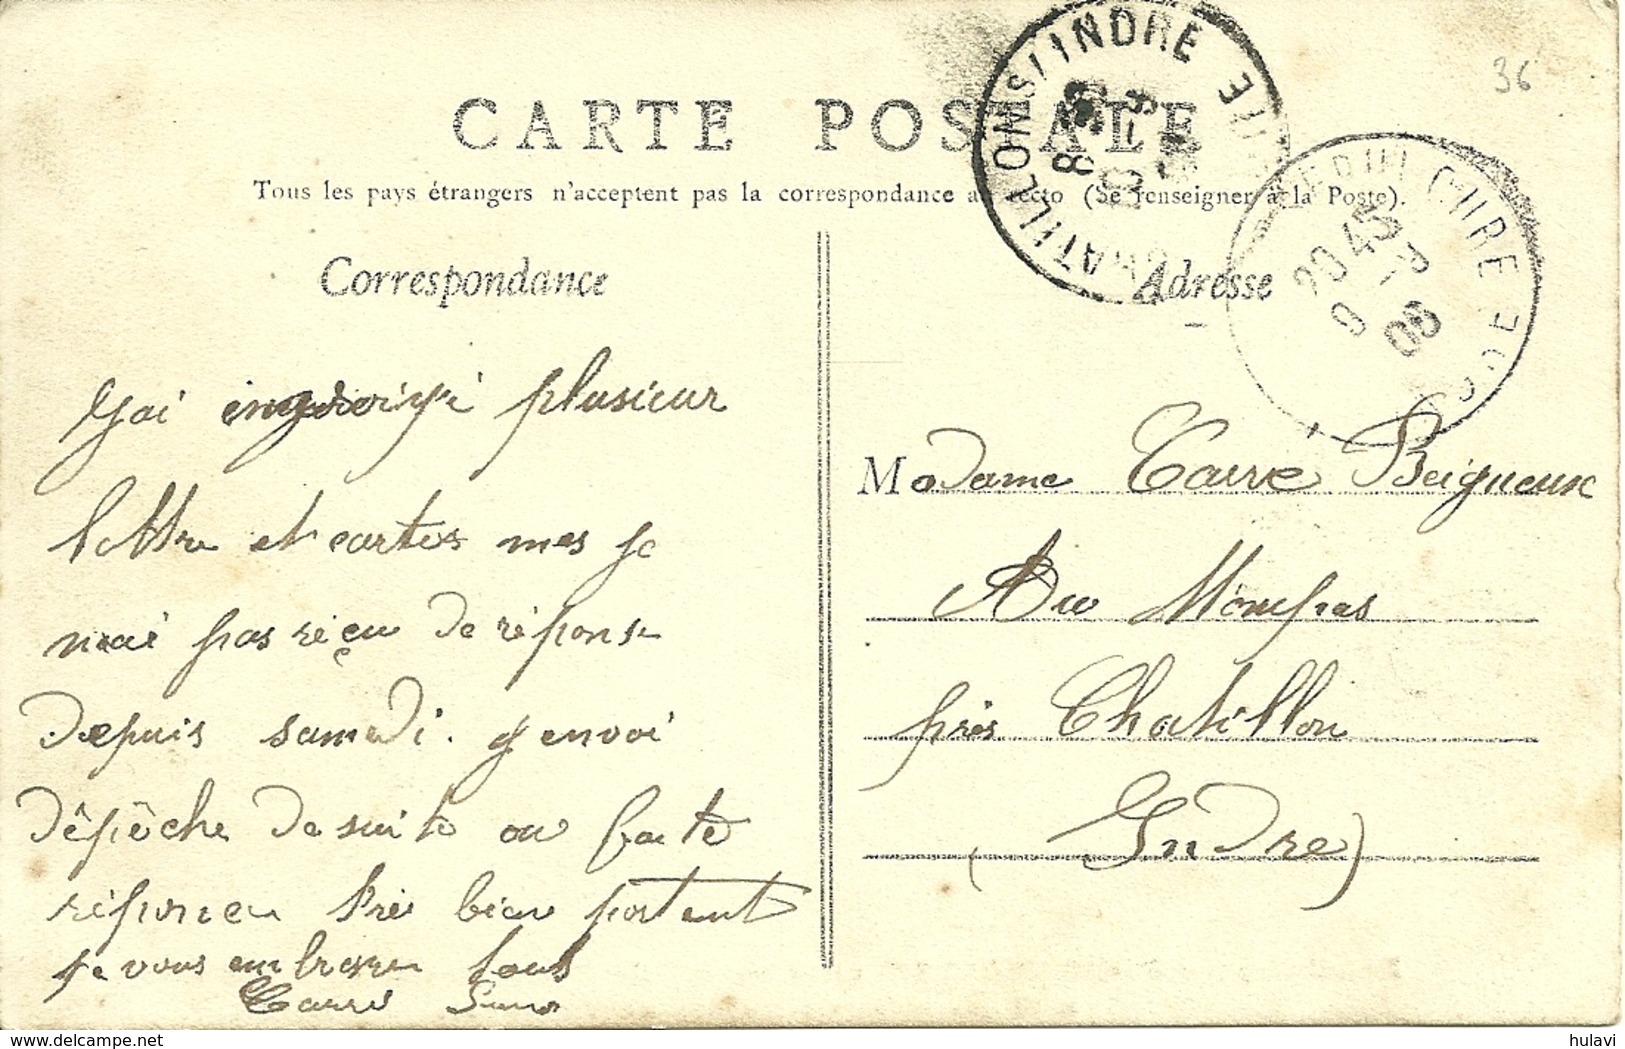 36
CARTE POSTALE
Tous les pays étrangers n'acceptent pas la correspondance au recto (Se renseigner à la Poste).
CHATILLON S/ INDRE
Correspondance
Adresse
20 45
9 -9
08
J'ai plusieur
lettre et cartes mes je
nai pas réçeu de réponse
Depuis samedi. j'envoi
Dêpêche De suite ou faite
réponce bien portent
je vous embrasse tous
Carré
Madame Carré Beigneux
Au Mompas
près Chatillon
(Indre)
hulavi